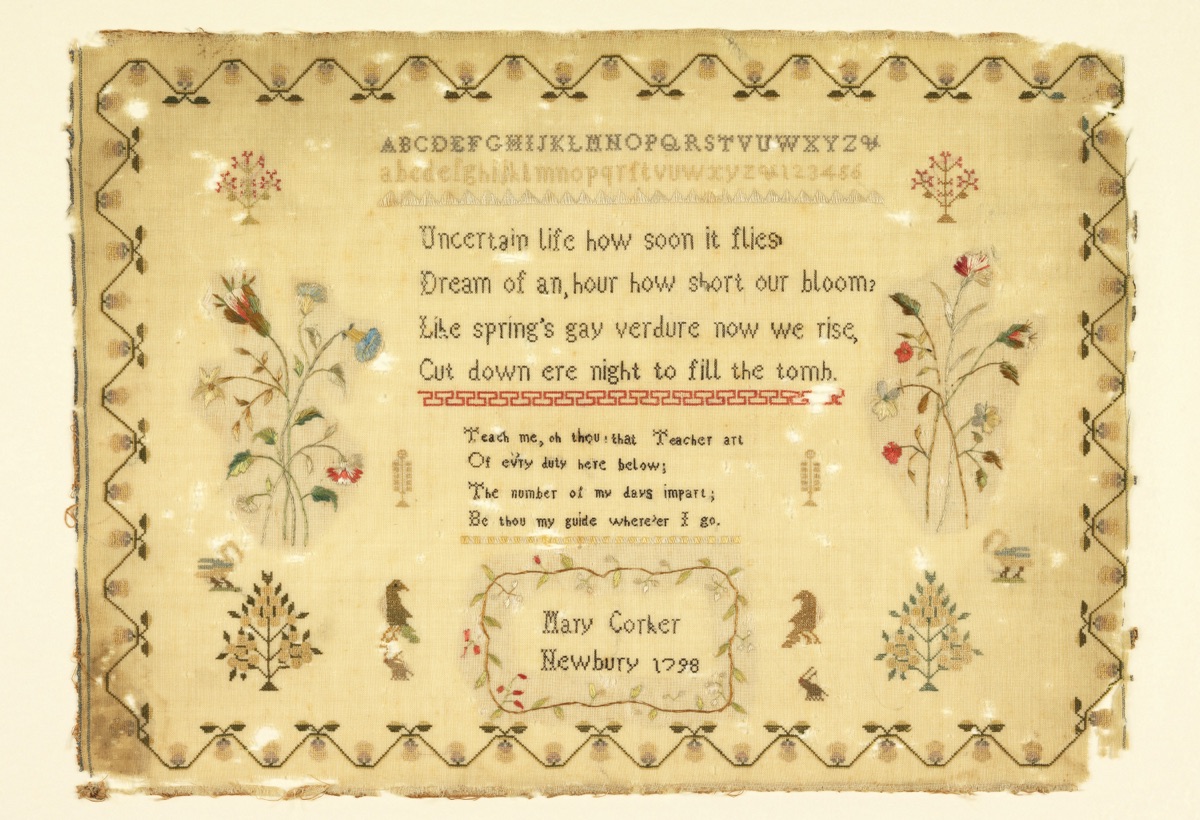 ABCDEFGHIJKLMNOPQRSTVUWXYZ&
abcdefghijklmnopqrſtvuwxyz&123456
Uncertain life how soon it flies
Dream of an, hour how short our bloom?
Like spring's gay verdure now we rise,
Cut down ere night to fill the tomb.
Teach me, oh thou: that Teacher art
Of ev'ry duty here below;
The number of my days impart;
Be thou my guide where'er I go.
Mary Corker
Newbury 1798